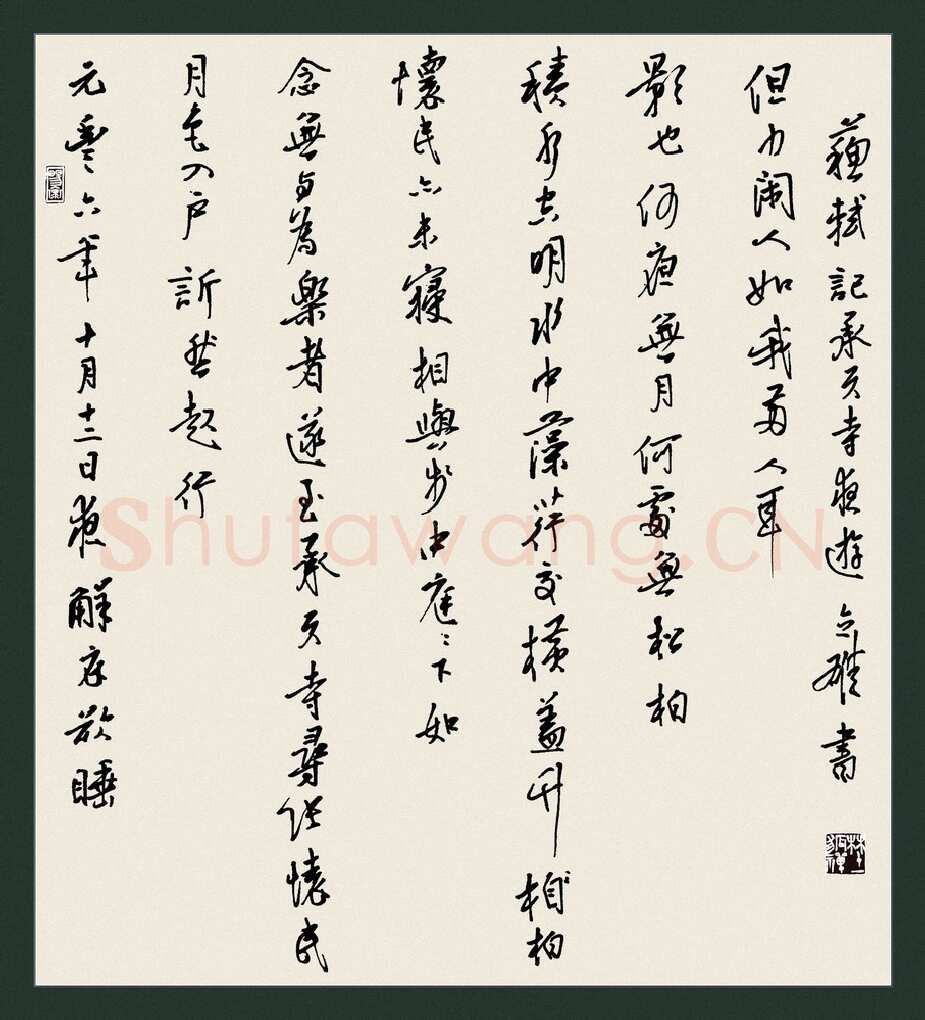 元豐六年十月十二日夜解衣欲睡
月色入户訢然起行
念無与為樂者遂至承天寺尋張懷民
懷民亦未寢相與步中庭〻下如
積水空明水中藻荇交橫蓋竹相柏
影也何夜無月何處無松柏
但少闲人如我兩人耳
蘇軾記承天寺夜遊 書
Shufawang.CN